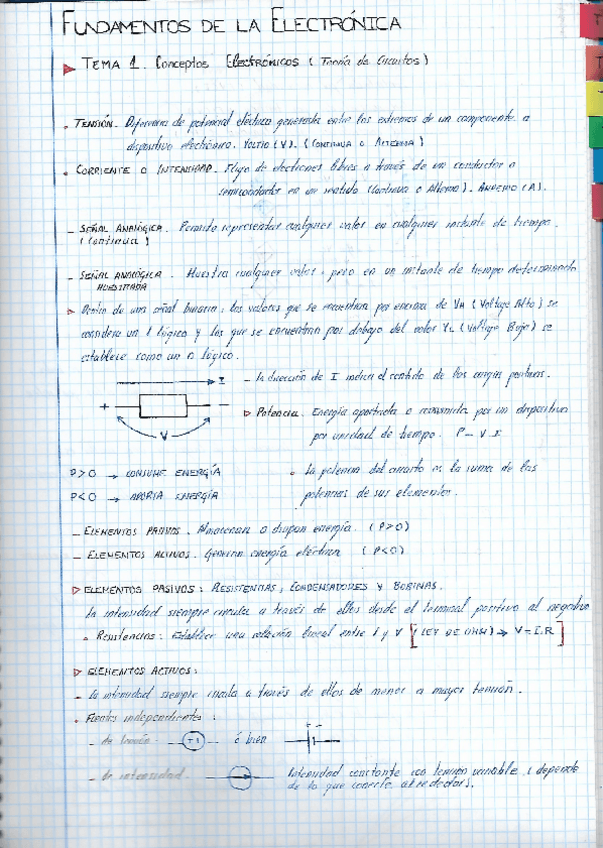 FUNDAMENTOS DE LA ELECTRÓNICA
TEMA 1. Conceptos Electrónicos (Teoría de Circuitos)
• TENSIÓN. Diferencia de potencial eléctrico generada entre los extremos de un componente o
dispositivo electrónico. VOLTIO (V). (CONTINUA O ALTERNA)
• CORRIENTE O INTENSIDAD. Flujo de electrones libres a través de un conductor o
semiconductor en un sentido (Continuo o Alterno). AMPERIO (A).
- SEÑAL ANALÓGICA. Permite representar cualquier valor en cualquier instante de tiempo.
(Continua)
- SEÑAL ANALÓGICA. Muestra cualquier valor, pero en un instante de tiempo determinado
MUESTREADA
Dentro de una señal binaria, los valores que se encuentran por encima de VH (Voltaje Alto) se
considera un 1 lógico y los que se encuentran por debajo del valor VL (Voltaje Bajo) se
establece como un 0 lógico.
I
- la dirección de I indica el sentido de las cargas positivas.
+ -
V
Potencia. Energía aportada o consumida por un dispositivo
por unidad de tiempo. P = V · I
P > 0 → CONSUME ENERGÍA
P < 0 → APORTA ENERGÍA
• la potencia del circuito es la suma de las
potencias de sus elementos.
- ELEMENTOS PASIVOS. Almacenan o disipan energía. (P>0)
- ELEMENTOS ACTIVOS. Generan energía eléctrica (P<0)
ELEMENTOS PASIVOS: RESISTENCIAS, CONDENSADORES Y BOBINAS.
la intensidad siempre circula a través de ellos desde el terminal positivo al negativo
• Resistencias: Establece una relación lineal entre I y V [(LEY DE OHM) → V = I·R]
ELEMENTOS ACTIVOS:
- la intensidad siempre circula a través de ellos de menor a mayor tensión.
• Fuentes independientes:
- de tensión ó bien
+ -
- de intensidad
Intensidad constante con tensión variable (depende
de lo que conecte alrededor).